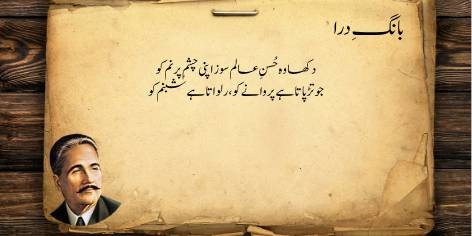 بانگِ درا
دکھا وہ حُسنِ عالم سوز اپنی چشمِ پرنم کو
جو تڑپاتا ہے پروانے کو، رلواتا ہے شبنم کو